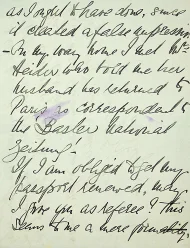 as I ought to have done, since
it created a false impression
- On my way home I met Mrs
Heider who told me her
husband has returned to
Paris as correspondent to
the Basler National
Zeitung!
If I am obliged to get my
passport renewed, may
I give you as referee? This
seems to me a mere formality.